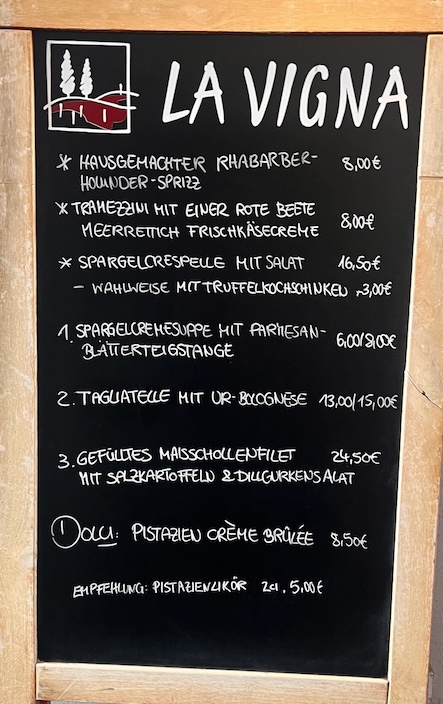 LA VIGNA
* HAUSGEMACHTER RHABARBER- 8,00€
HOLUNDER-SPRIZZ
* TRAMEZZINI MIT EINER ROTE BEETE
MEERRETTICH FRISCHKÄSECREME 8,00€
* SPARGELCRESPELLE MIT SALAT 16,50€
- WAHLWEISE MIT TRÜFFELKOCHSCHINKEN +3,00€
1. SPARGELCREMESUPPE MIT PARMESAN- 6,00/8,00€
BLÄTTERTEIGSTANGE
2. TAGLIATELLE MIT UR-BOLOGNESE 13,00/15,00€
3. GEFÜLLTES MAISSCHOLLENFILET 24,50€
MIT SALZKARTOFFELN & DILLGURKENSALAT
DOLCI: PISTAZIEN CRÈME BRÛLÉE 8,50€
EMPFEHLUNG: PISTAZIENLIKÖR 2cl. 5,00€